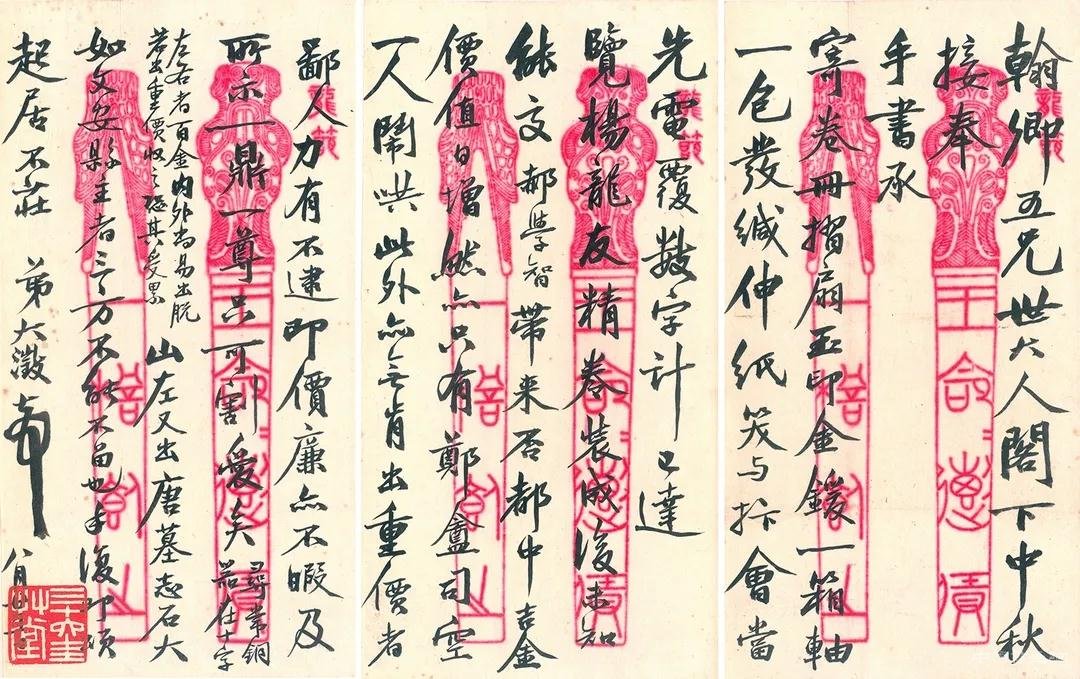 翰卿五兄世大人閣下中秋
接奉
手書承
寄卷冊摺扇玉印金鍰一箱軸
一包發緘伸紙笑与抃會當
先電覆數字計已達
覽楊龍友精卷裝成後未知
能交郝學智帶来否都中吉金
價值日增然亦只有鄭盦司空
一人鬧哄此外亦無肯出重價者
鄙人力有不逮即價廉亦不暇及
所示一鼎一尊只可割愛矣尋常銅
器在十字
左右者百金內外尚易出脫
若出重價收之恐其受累
山左又出唐墓志石大
如文安縣主者万不能不留也手復即頌
起居不莊 弟大澂頓首 八月
龍節
龍節
龍節